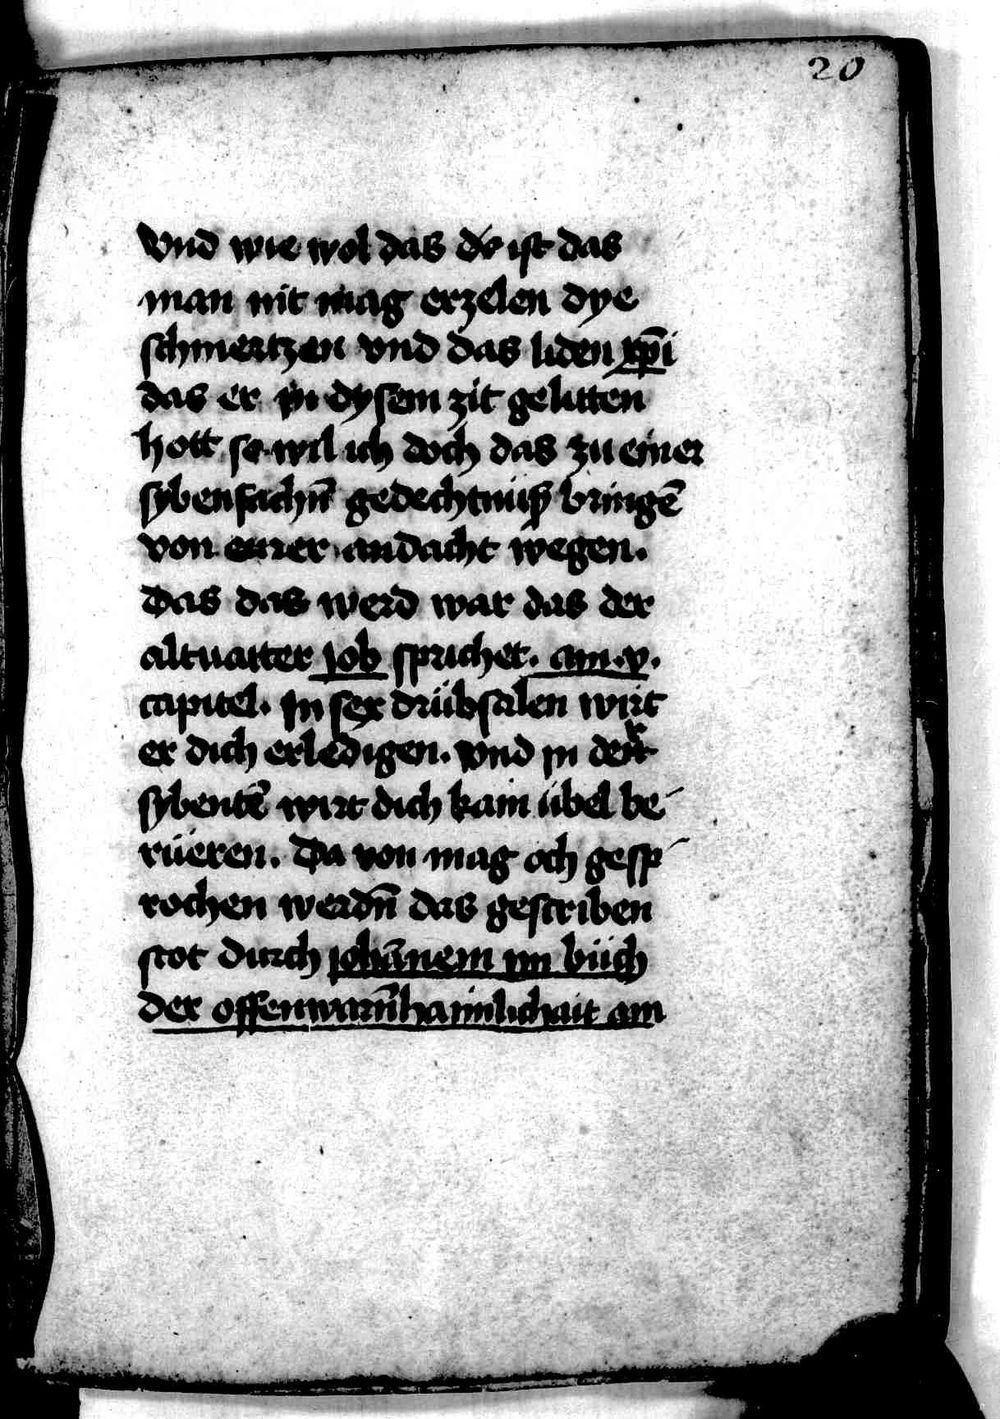 20
Vnd wie wol das do ist das
man nit mag erzelen dye
schmertzen vnd das liden xp̄i
das er in dysem zit gelitten
hott so wil ich doch das zu einer
sybenfachn̄ gedechtnüß bringē
von eurer andacht wegen.
Das das werd war das der
altuatter iob sprichet. am .v.
capitel. In sex drübsalen wirt
er dich erledigen. Vnd in der
sybentē wirt dich kain übel be-
rüeren. Da von mag och gesp-
rochen werdn̄ das gescriben
stot durch iohānem im büch
der offenwarn̄ haimlichait am